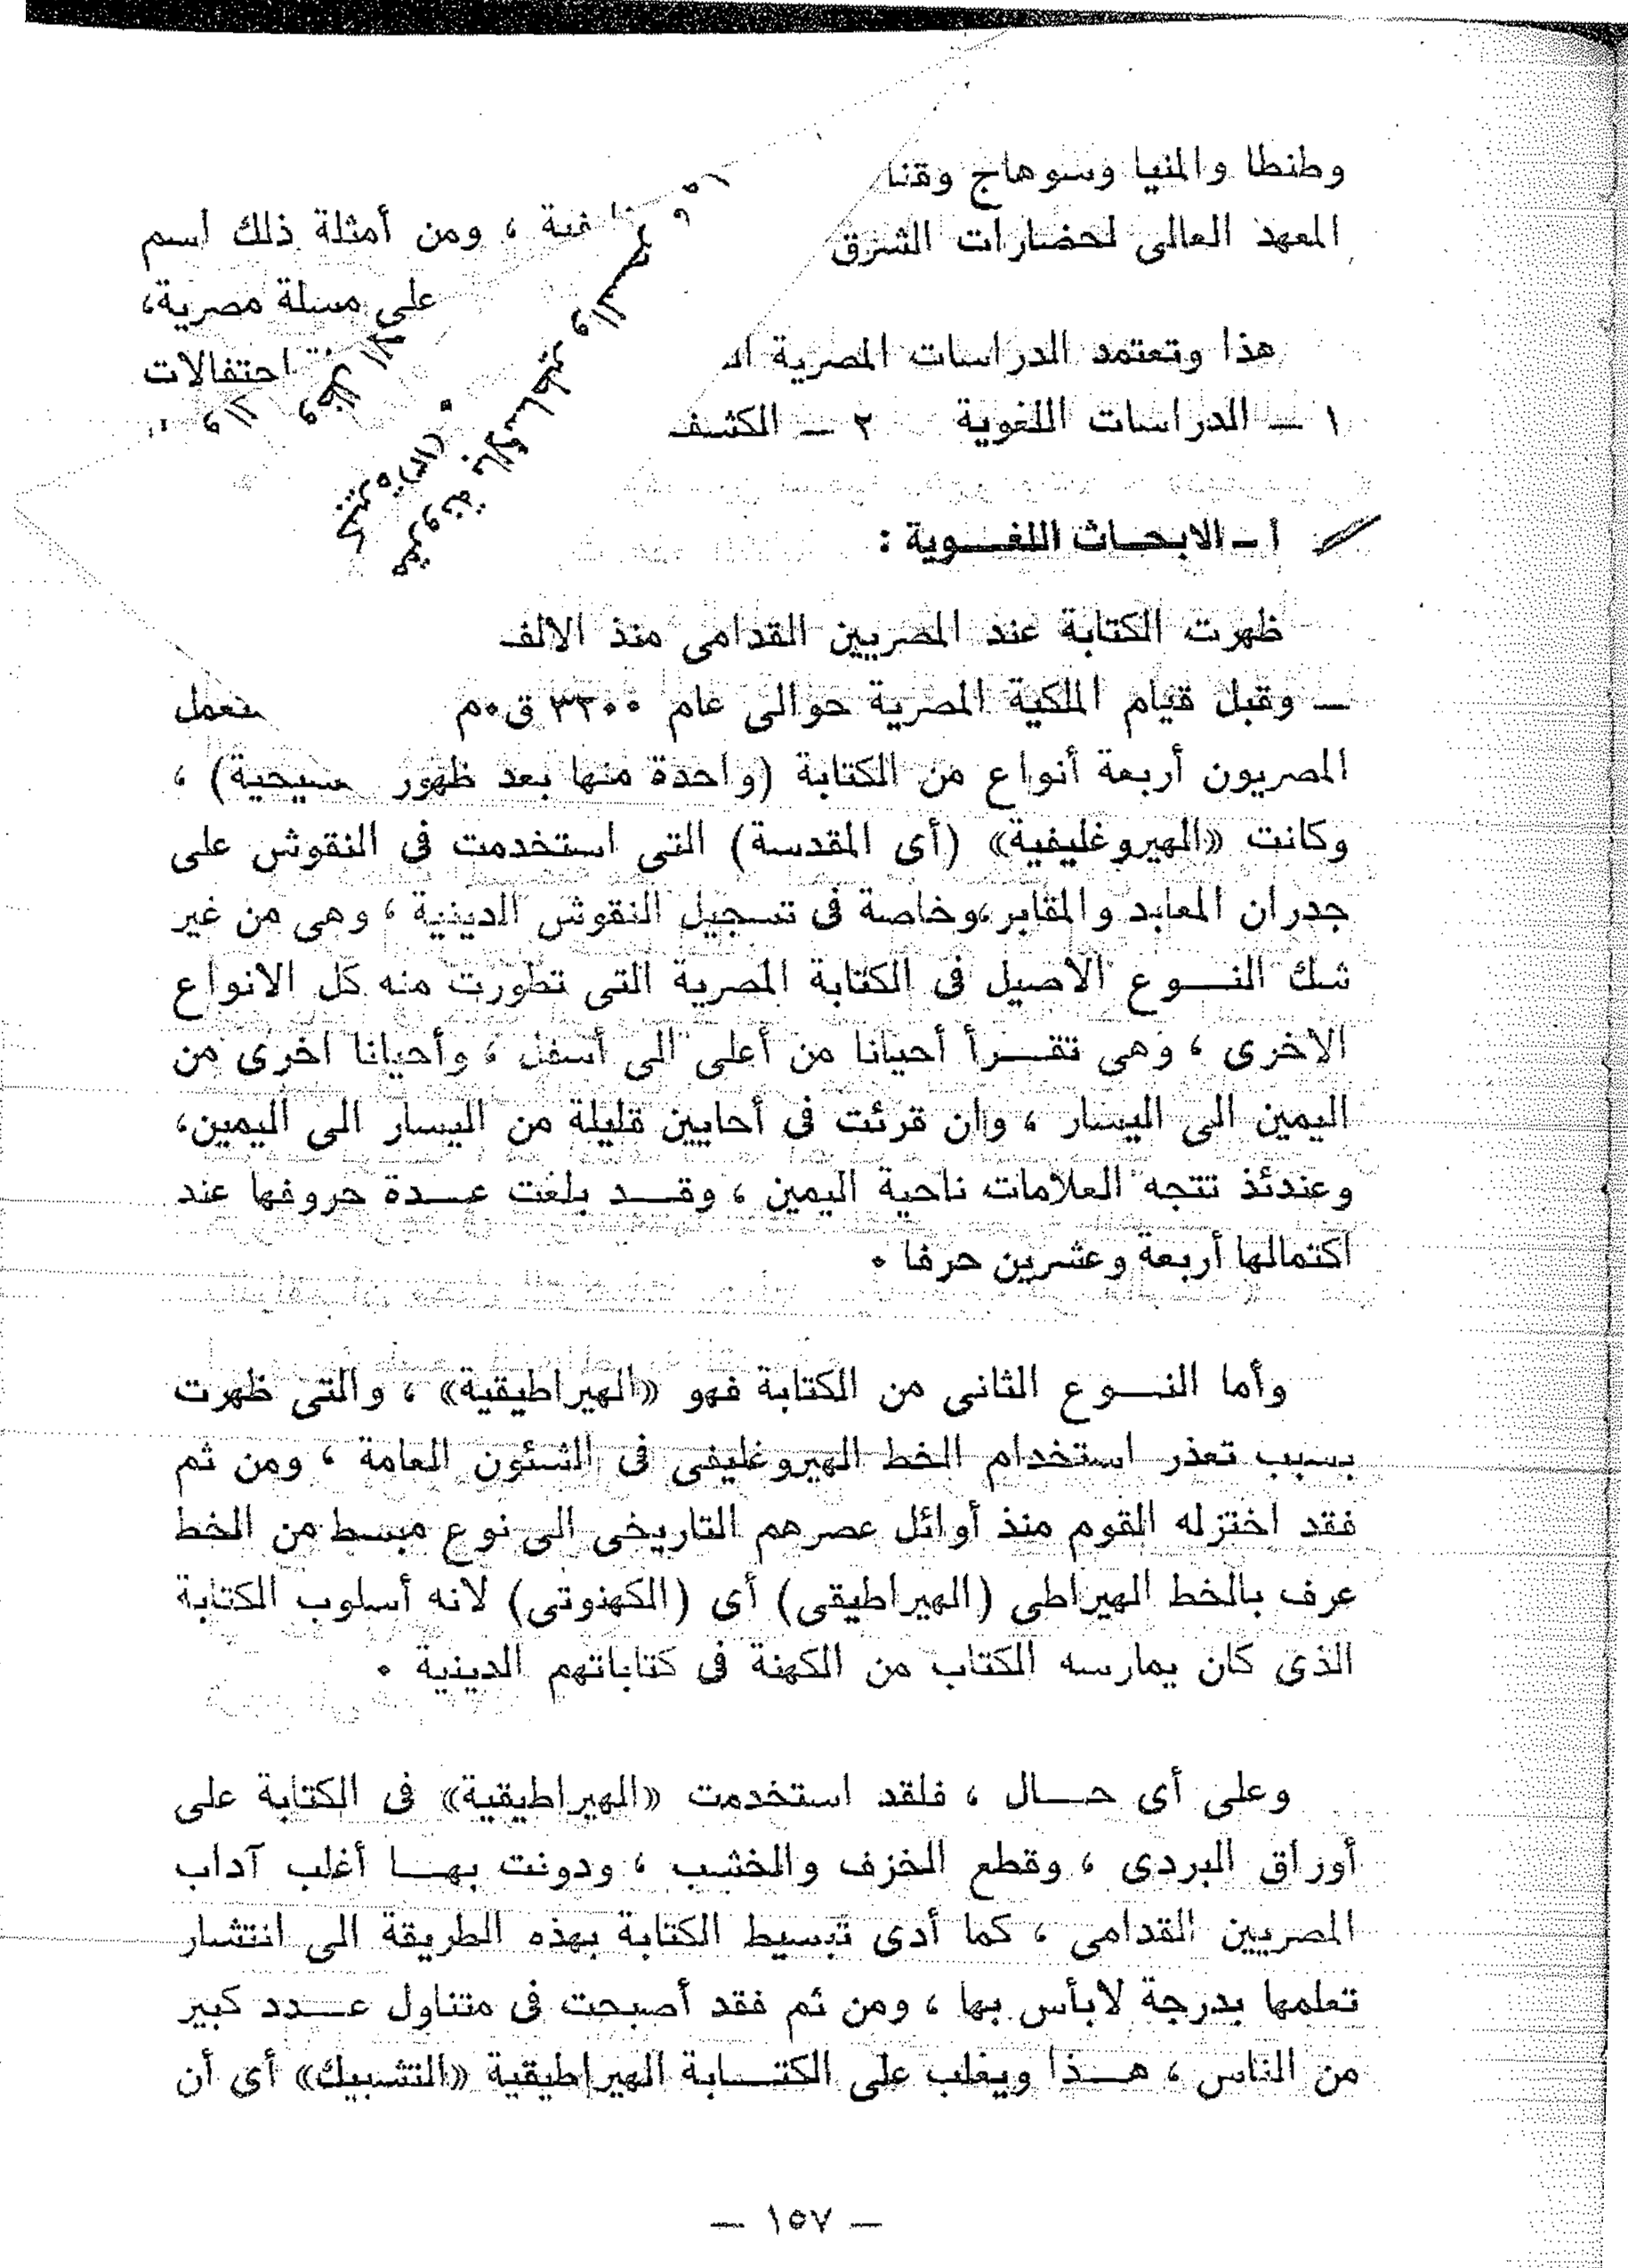 وطنطا والمنيا وسوهاج وقنا
المعهد العالى لحضارات الشرق
فية ، ومن أمثلة ذلك اسم
على مسلة مصرية،
هذا وتعتمد الدراسات المصرية
احتفالات
١ ـ الدراسات اللغوية ٢ ـ الكشف
مقرونة بالأساطير
كبيرة (١٣) ٠
أ ـ الابحـاث اللغـــوية :
ظهرت الكتابة عند المصريين القدامى منذ الالف
ـ وقبل قيام الملكية المصرية حوالى عام ٣٢٠٠ ق٠م
المصريون أربعة أنواع من الكتابة (واحدة منها بعد ظهور سيحية) ،
وكانت «الهيروغليفية» (أى المقدسة) التى استخدمت فى النقوش على
جدران المعابد والمقابر ،وخاصة فى تسجيل النقوش الدينية ، وهى من غير
شك النـــوع الاصيل فى الكتابة المصرية التى تطورت منه كل الانواع
الاخرى ، وهى تقـــرأ أحيانا من أعلى الى أسفل ، وأحيانا اخرى من
اليمين الى اليسار ، وان قرئت فى أحايين قليلة من اليسار الى اليمين،
وعندئذ تتجه العلامات ناحية اليمين ، وقـــد بلغت عـــدة حروفها عند
اكتمالها أربعة وعشرين حرفا ٠
وأما النـــوع الثانى من الكتابة فهو «الهيراطيقية» ، والتى ظهرت
بسبب تعذر استخدام الخط الهيروغليفى فى الشئون العامة ، ومن ثم
فقد اختزله القوم منذ أوائل عصرهم التاريخى الى نوع مبسط من الخط
عرف بالخط الهيراطى (الهيراطيقى) أى (الكهنوتى) لانه أسلوب الكتابة
الذى كان يمارسه الكتاب من الكهنة فى كتاباتهم الدينية ٠
وعلى أى حـــال ، فلقد استخدمت «الهيراطيقية» فى الكتابة على
أوراق البردى ، وقطع الخزف والخشب ، ودونت بهـــا أغلب آداب
المصريين القدامى ، كما أدى تبسيط الكتابة بهذه الطريقة الى انتشار
تعلمها بدرجة لابأس بها ، ومن ثم فقد أصبحت فى متناول عـــدد كبير
من الناس ، هـــذا ويغلب على الكتـــابة الهيراطيقية «التشبيك» أى أن
ـ ١٥٧ ـ